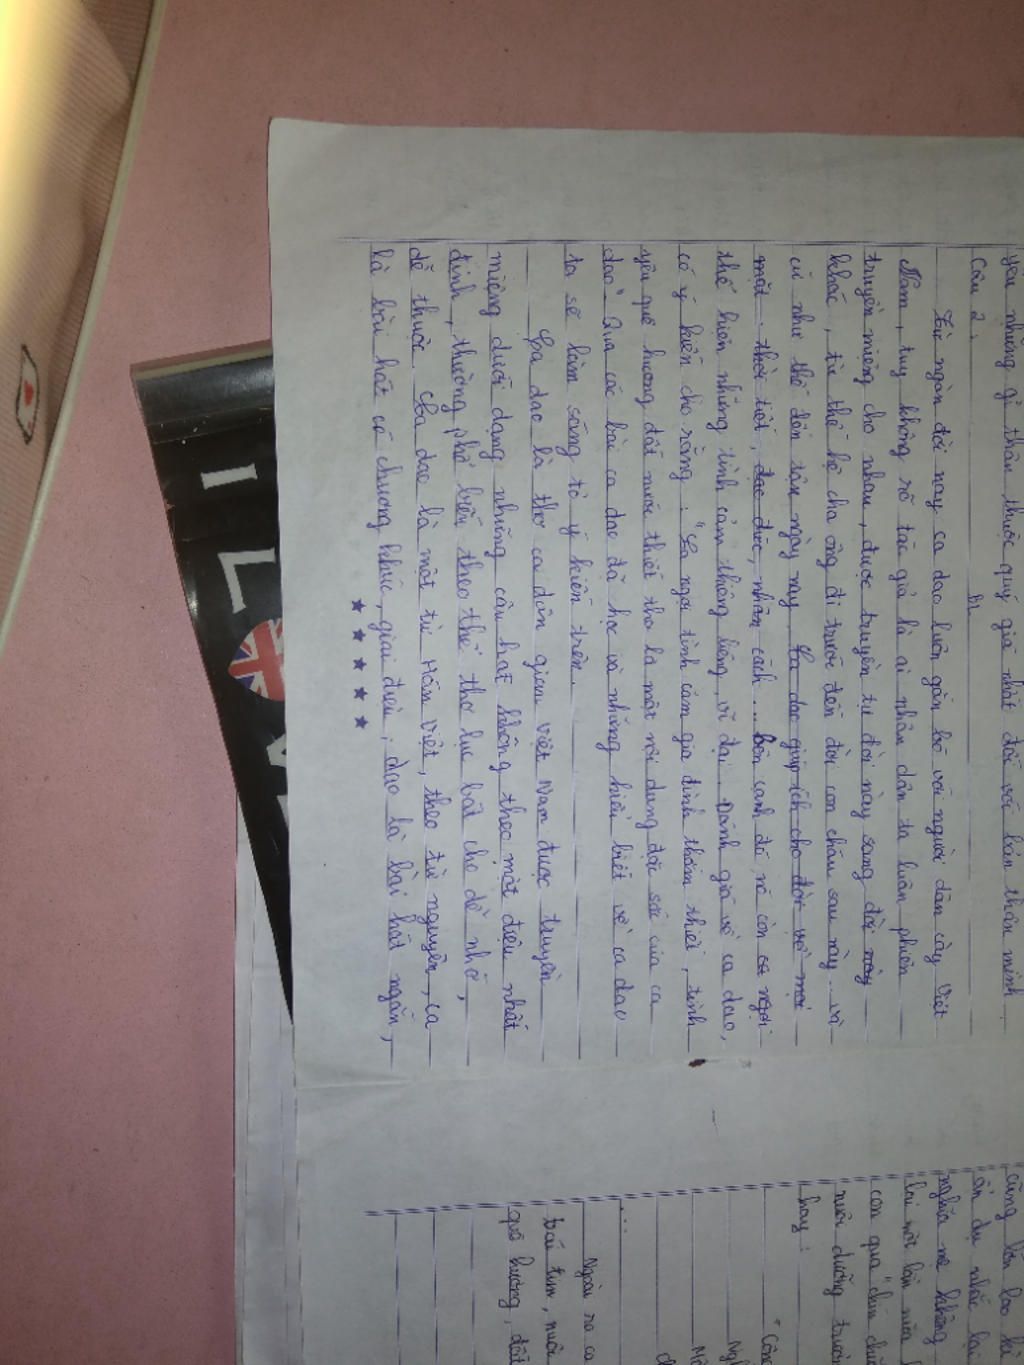 yêu những gì thân thuộc quý giá nhất đối với bản thân mình.
Câu 2.
Từ ngàn đời nay ca dao luôn gắn bó với người dân cày Việt
Nam, tuy không rõ tác giả là ai nhân dân ta luân phiên
truyền miệng cho nhau, được truyền từ đời này sang đời này
khác, từ thế hệ cha ông đi trước đến đời con cháu sau này và
cứ như thế đến tận ngày nay. Ca dao giúp ích cho đời về mọi
mặt: thời tiết, đạo đức, nhân cách... Bên cạnh đó, nó còn ca ngợi
thể hiện những tình cảm thiêng liêng, vĩ đại. Đánh giá về ca dao,
có ý kiến cho rằng: "Ca ngợi tình cảm gia đình thắm thiết, tình
yêu quê hương đất nước thiết tha là một nội dung đặc sắc của ca
dao". Qua các bài ca dao đã học và những hiểu biết về ca dao
ta sẽ làm sáng tỏ ý kiến trên.
Ca dao là thơ ca dân gian Việt Nam được truyền
miệng dưới dạng những câu hát không theo một điệu nhất
định, thường phổ biến theo thể thơ lục bát cho dễ nhớ,
dễ thuộc. Ca dao là một từ Hán Việt, theo từ nguyên, ca
là bài hát có chương khúc, giai điệu; dao là bài hát ngắn,
cũng lớn lao
ẩn dụ nhắc lại
nghĩa mẹ không
lại một lần nữa
con qua "chín chữ
nuôi dưỡng trưởn
hay:
"Côn
Ngh
Mộ
Ngoài ra ca
trái tim, nuôi
quê hương, đất
I L